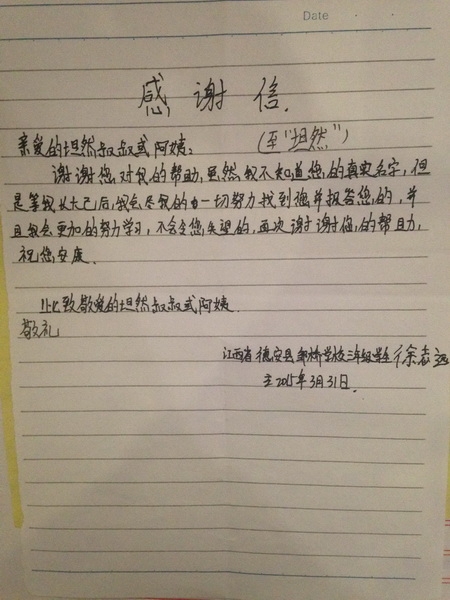 Date
感谢信.
(至“坦然”)
亲爱的坦然叔叔或阿姨:
谢谢您对我的帮助,虽然我不知道您的真实名字,但
是等我长大已后,我会尽我的一切努力找到您并报答您的,并
且我会更加的努力学习,不会令您失望的,再次谢谢您的帮助,
祝您安康.
此致敬爱的坦然叔叔或阿姨
敬礼
江西省德安县邹桥学校三年级学生徐志远
2015年3月31日.